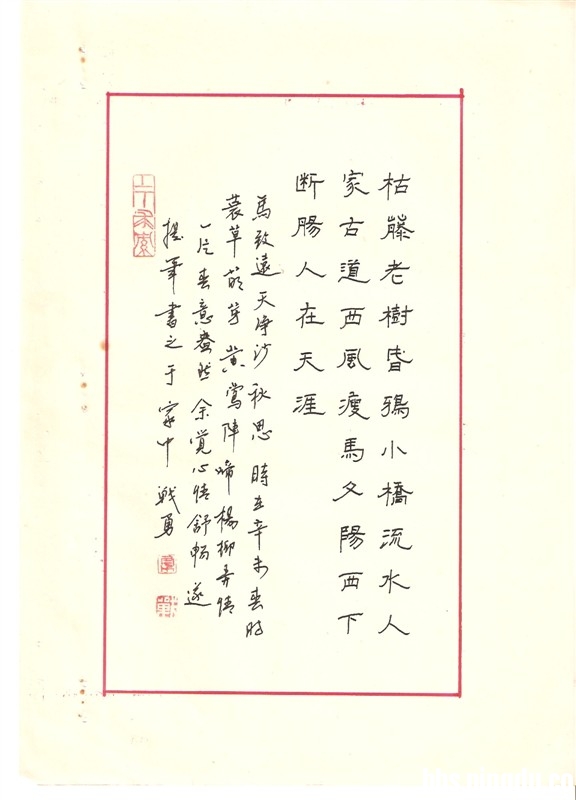 枯藤老樹昏鴉小橋流水人
家古道西風瘦馬夕陽西下
断腸人在天涯
馬致遠天净沙秋思時在辛未春時
蓑草萌芽黄鶯陣啼楊柳弄情
一片春意盎然余覚心情舒暢遂
提筆書之于家中戦勇